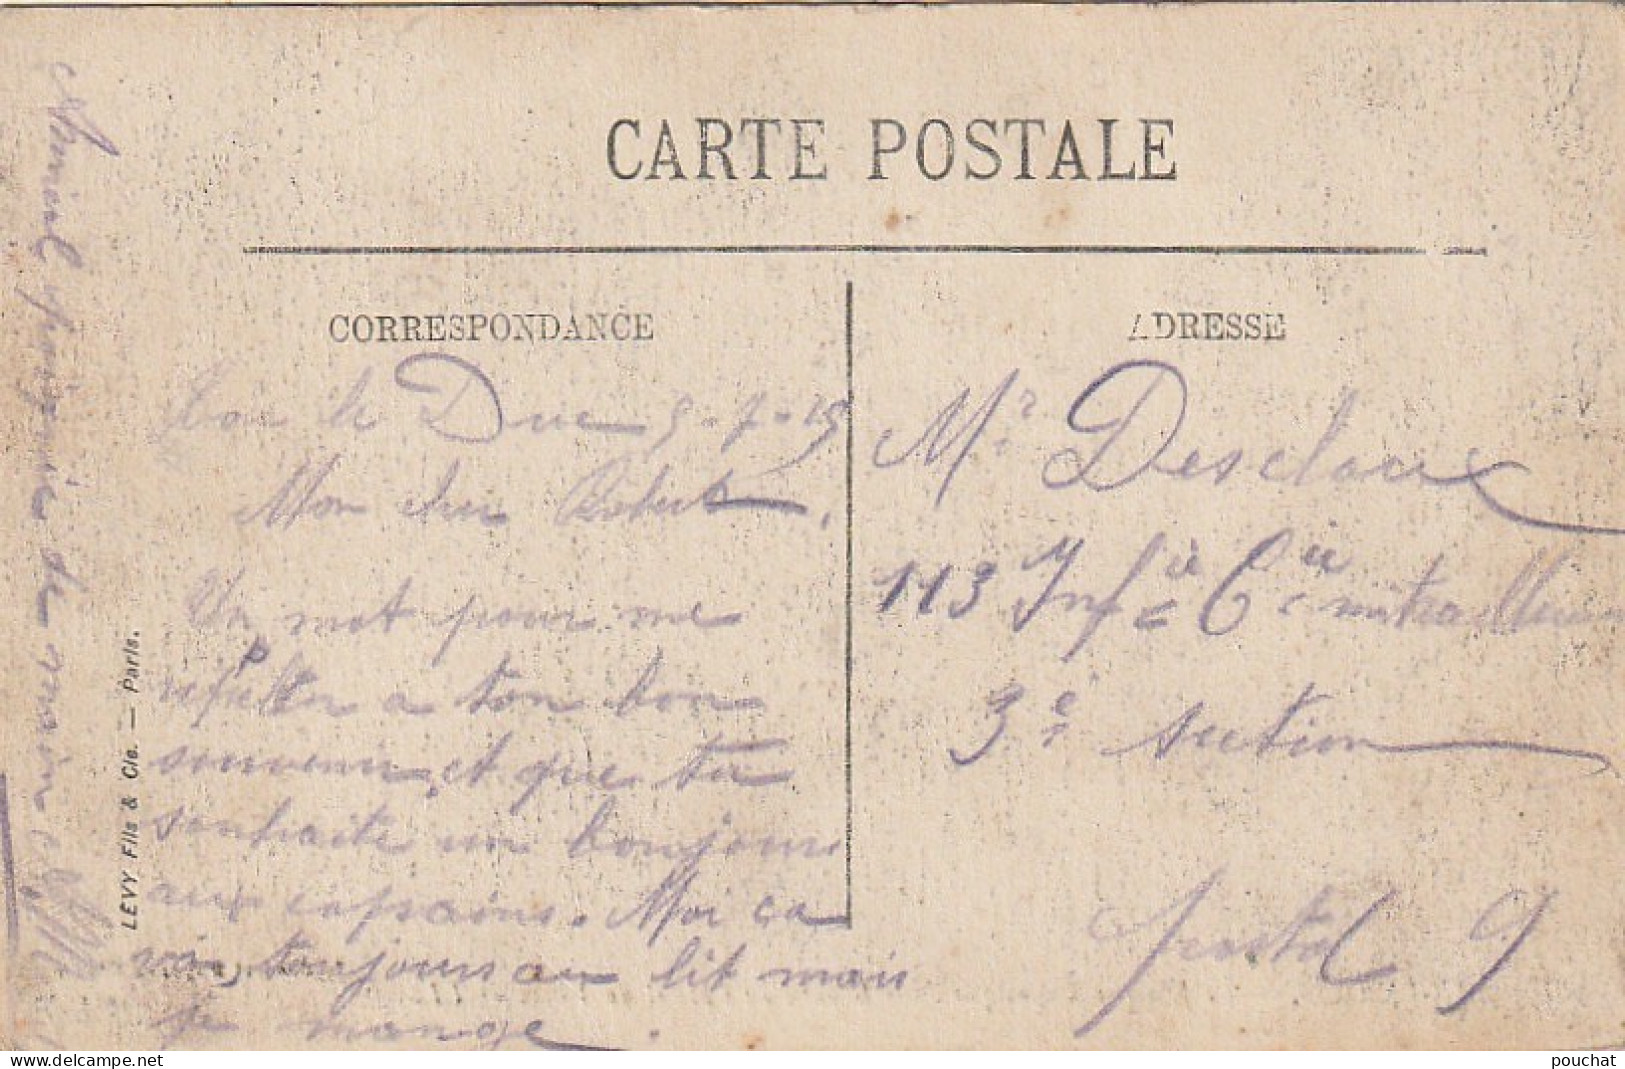 CARTE POSTALE
CORRESPONDANCE
Bar le Duc 5-7-15
Mon cher Robert,
Un mot pour me
rappeler a ton bon
souvenir, et que tu
souhaite un bonjour
aux copains. Moi ca
va toujours au lit mais
je mange.
Amical poignée de main
LEVY Fils & Cie. — Paris.
ADRESSE
Mr Desclaux
113 Infie Cie mitrailleuse
3e section
Postal 9
delcampe.net
pouchat